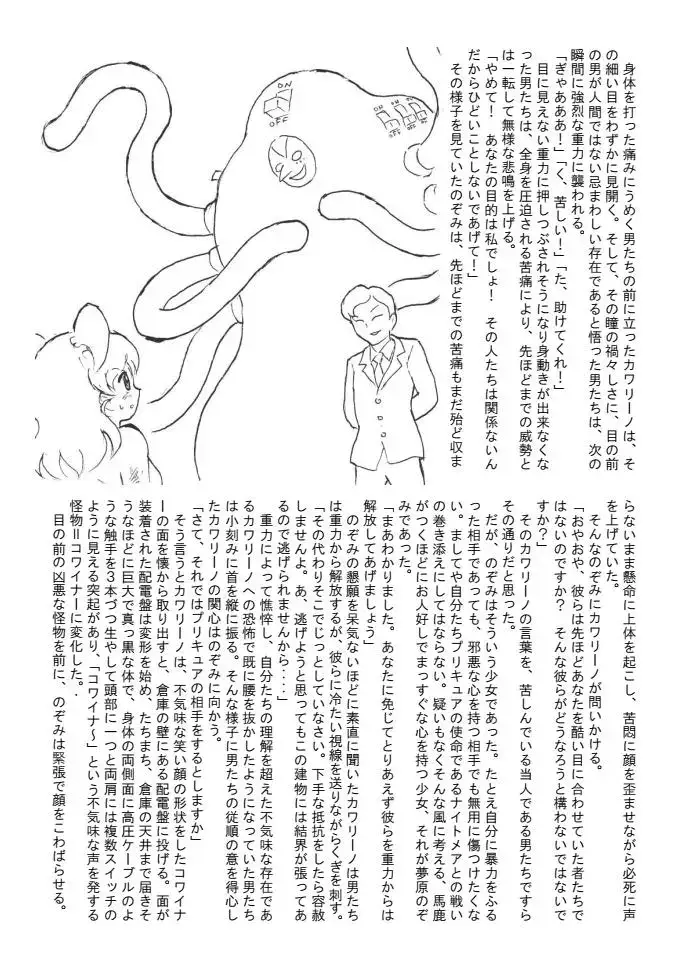 ON
OFF
ON
OFF
ON
OFF
身体を打った痛みにうめく男たちの前に立ったカワリーノは、そ
の細い目をわずかに見開く。そして、その瞳の禍々しさに、目の前
の男が人間ではない忌まわしい存在であると悟った男たちは、次の
瞬間に強烈な重力に襲われる。
「ぎゃあああ!」「く、苦しい!」「た、助けてくれ!」
目に見えない重力に押しつぶされそうになり身動きが出来なくな
った男たちは、全身を圧迫される苦痛により、先ほどまでの威勢と
は一転して無様な悲鳴を上げる。
「やめて! あなたの目的は私でしょ! その人たちは関係ないん
だからひどいことしないであげて!」
その様子を見ていたのぞみは、先ほどまでの苦痛もまだ殆ど収ま
らないまま懸命に上体を起こし、苦悶に顔を歪ませながら必死に声
を上げていた。
そんなのぞみにカワリーノが問いかける。
「おやおや、彼らは先ほどあなたを酷い目に合わせていた者たちで
はないのですか? そんな彼らがどうなろうと構わないではないで
すか?」
そのカワリーノの言葉を、苦しんでいる当人である男たちですら
その通りだと思った。
だが、のぞみはそういう少女であった。たとえ自分に暴力をふる
った相手であっても、邪悪な心を持つ相手でも無用に傷つけたくな
い。ましてや自分たちプリキュアの使命であるナイトメアとの戦い
の巻き添えにしてはならない。疑いもなくそんな風に考える、馬鹿
がつくほどにお人好しでまっすぐな心を持つ少女、それが夢原のぞ
みであった。
「まあわかりました。あなたに免じてとりあえず彼らを重力からは
解放してあげましょう」
のぞみの懇願を呆気ないほどに素直に聞いたカワリーノは男たち
は重力から解放するが、彼らに冷たい視線を送りながらくぎを刺す。
「その代わりそこでじっとしていなさい。下手な抵抗をしたら容赦
しませんよ。あ、逃げようと思ってもこの建物には結界が張ってあ
るので逃げられませんから・・・」
重力によって憔悴し、自分たちの理解を超えた不気味な存在であ
るカワリーノへの恐怖で既に腰を抜かしたようになっていた男たち
は小刻みに首を縦に振る。そんな様子に男たちの従順の意を得心し
たカワリーノの関心はのぞみに向かう。
「さて、それではプリキュアの相手をするとしますか」
そう言うとカワリーノは、不気味な笑い顔の形状をしたコワイナ
ーの面を懐から取り出すと、倉庫の壁にある配電盤に投げる。面が
装着された配電盤は変形を始め、たちまち、倉庫の天井まで届きそ
うなほどに巨大で真っ黒な体で、身体の両側面に高圧ケーブルのよ
うな触手を3本づつ生やして頭部に一つと両肩には複数スイッチの
ように見える突起があり、「コワイナ~」という不気味な声を発する
怪物=コワイナーに変化した。.
目の前の凶悪な怪物を前に、のぞみは緊張で顔をこわばらせる。